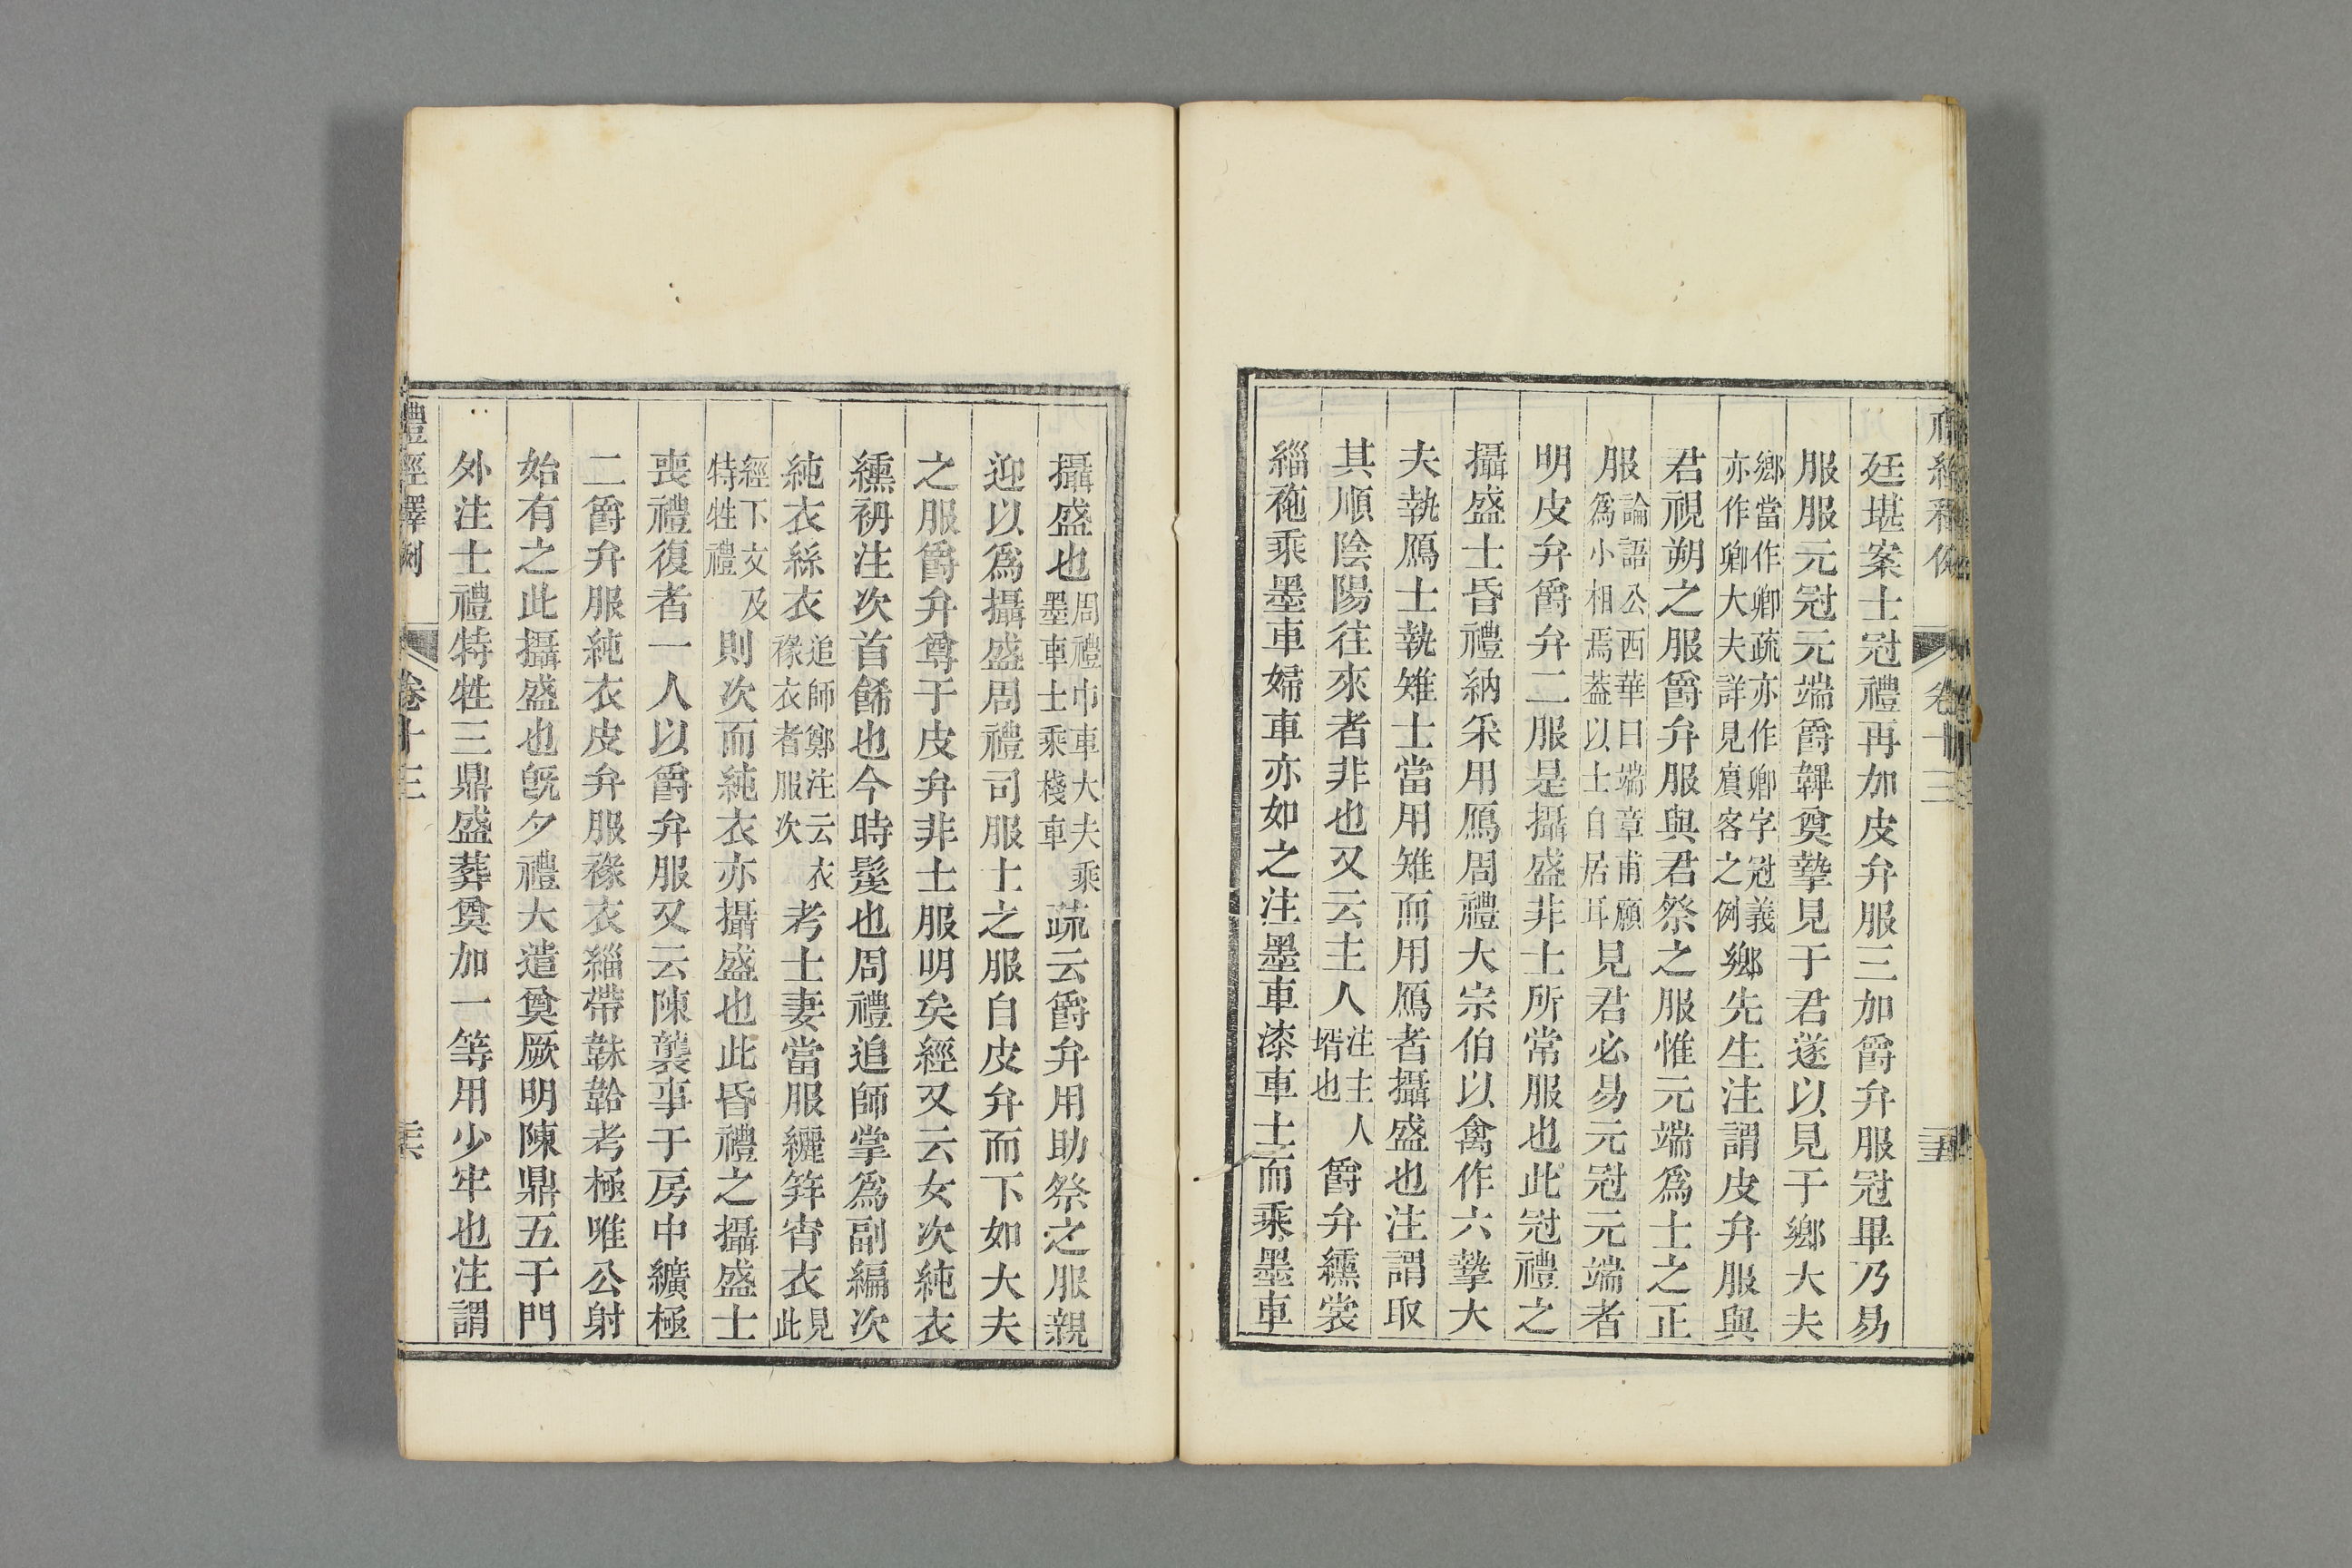 禮經釋例 卷十三 三十五
廷堪案士冠禮再加皮弁服三加爵弁服冠畢乃易
服服元冠元端爵韠奠摯見于君遂以見于鄉大夫
鄉當作卿疏亦作卿字冠義亦作卿大夫詳見賔客之例鄉先生注謂皮弁服與
君視朔之服爵弁服與君祭之服惟元端爲士之正
服論語公西華曰端章甫願爲小相焉葢以士自居耳見君必易元冠元端者
明皮弁爵弁二服是攝盛非士所常服也此冠禮之
攝盛士昏禮納采用鴈周禮大宗伯以禽作六摯大
夫執鴈士執雉士當用雉而用鴈者攝盛也注謂取
其順陰陽往來者非也又云主人注主人壻也爵弁纁裳
緇袘乘墨車婦車亦如之注墨車漆車士而乘墨車
攝盛也周禮巾車大夫乘墨車士乘棧車疏云爵弁用助祭之服親
迎以爲攝盛周禮司服士之服自皮弁而下如大夫
之服爵弁尊于皮弁非士服明矣經又云女次純衣
纁袡注次首餙也今時髲也周禮追師掌爲副編次
純衣絲衣追師鄭注云衣褖衣者服次考士妻當服纚筓宵衣見此
經下文及特牲禮則次而純衣亦攝盛也此昏禮之攝盛士
喪禮復者一人以爵弁服又云陳襲事于房中纊極
二爵弁服純衣皮弁服褖衣緇帶韎韐考極唯公射
始有之此攝盛也旣夕禮大遣奠厥明陳鼎五于門
外注士禮特牲三鼎盛葬奠加一等用少牢也注謂
禮經釋例 卷十三 三十六